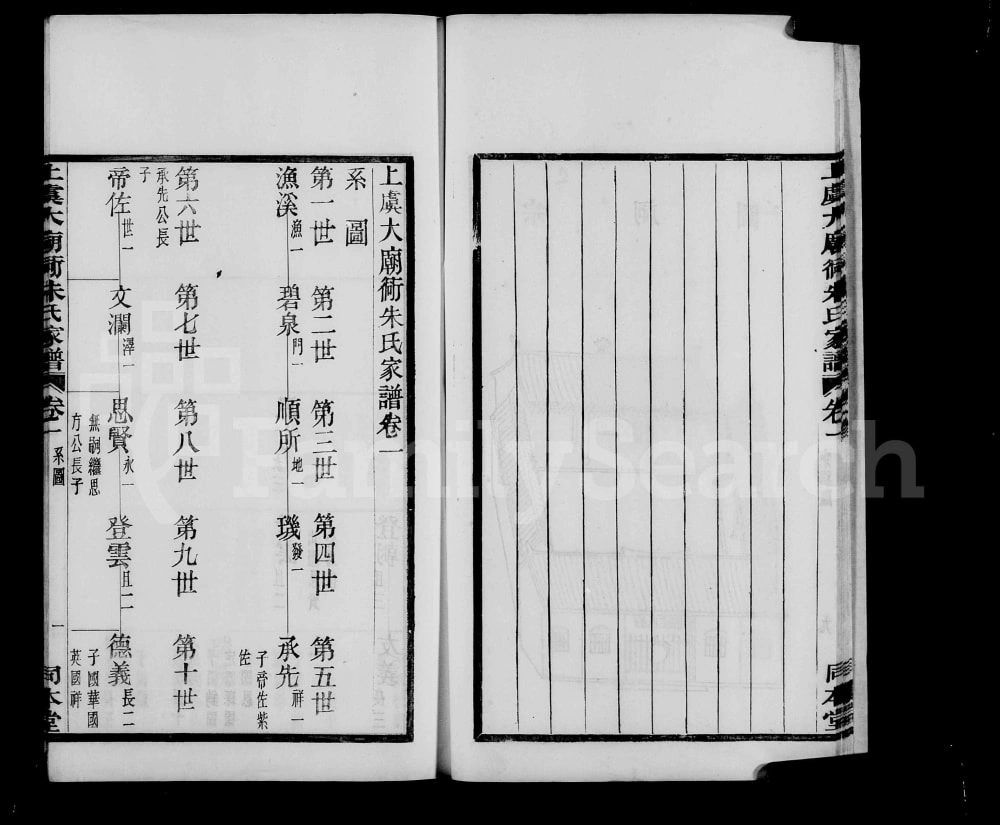 上虞大廟衖朱氏家譜
卷一
同本堂
上虞大廟衖朱氏家譜卷一
系圖
第一世 第二世 第三世 第四世 第五世
漁溪漁一 碧泉門一 順所地一 璣發一 承先祥一
子帝佐紫
佐
第六世 第七世 第八世 第九世 第十世
承先公長
子
帝佐世一 文瀾澤一 思賢永一 登雲且二 德義長二
無嗣繼思
方公長子
子國華國
英國祥
上虞大廟衖朱氏家譜 卷一 系圖 一 同本堂
FamilySearch